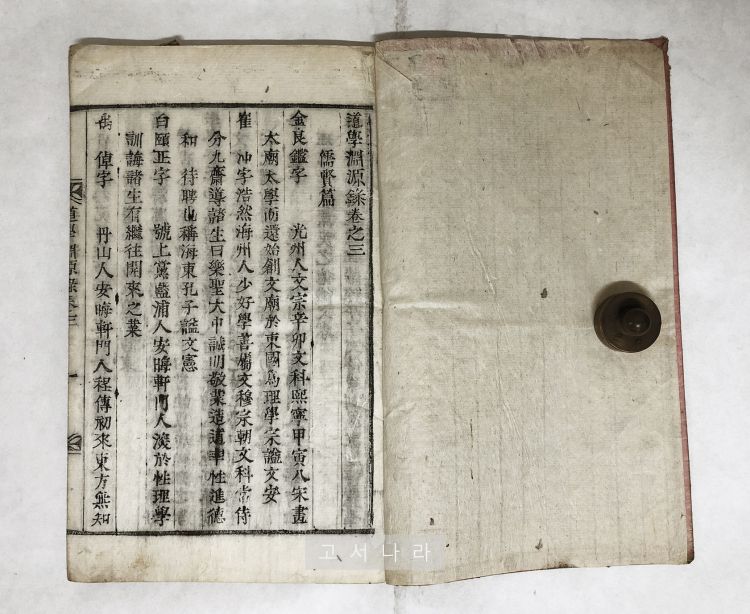 道學淵源錄卷之三
儒賢篇
金良鑑字 光州人文宗辛卯文科熙寧甲寅入宋畫
太廟太學而還始創文廟於東國爲理學宗諡文安
崔 冲字浩然海州人少好學善屬文穆宗朝文科常侍
分九齋導諸生曰樂聖大中誠明敬業造道率性進德
和 待聘世稱海東孔子諡文憲
白頤正字 號上黨藍浦人安晦軒門人深於性理學
訓誨諸生有繼往開來之業
禹 倬字 丹山人安晦軒門人程傳初來東方無知
道學淵源錄卷三 一
고서나라